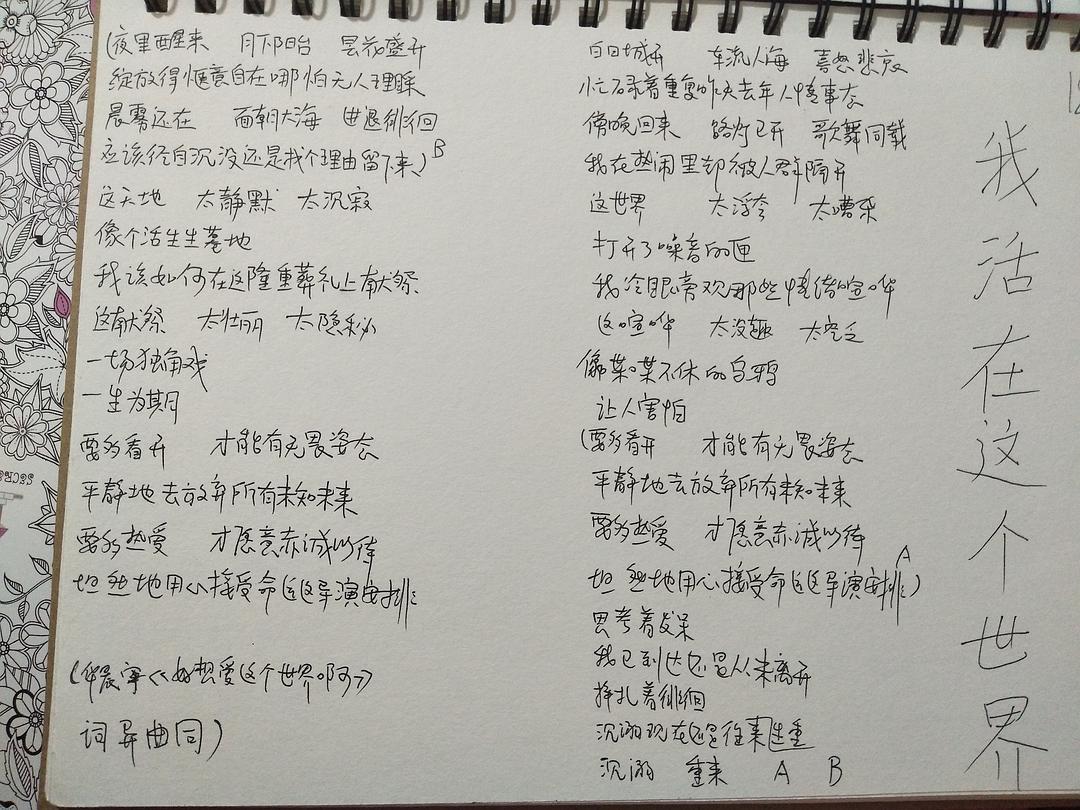 (夜里醒来 月下阳台 昙花盛开
绽放得惬意自在哪怕无人理睬
晨雾还在 面朝大海 进退徘徊
应该径自沉没还是找个理由留下来) B
这天地 太静默 太沉寂
像个活生生墓地
我该如何在这隆重葬礼上献祭
这献祭 太壮丽 太隐秘
一场独角戏
一生为期
要多看开 才能有无畏姿态
平静地去放弃所有未知未来
要多热爱 才愿意赤诚以待
坦然地用心接受命运这导演安排
(华晨宇《好想爱这个世界啊》
词异曲同)
白日城开 车流人海 喜怒悲哀
忙碌着重复昨天去年人情事态
傍晚回来 路灯已开 歌舞同载
我在热闹里却被人群隔开
这世界 太浮夸 太嘈杂
打开了噪音的匣
我冷眼旁观那些情绪喧哗
这喧哗 太没趣 太空乏
像喋喋不休的乌鸦
让人害怕
(要多看开 才能有无畏姿态
平静地去放弃所有未知未来
要多热爱 才愿意赤诚以待
坦然地用心接受命运这导演安排) A
思考着发呆
我已到达还是从未离开
挣扎着徘徊
沉溺现在还是往来重
沉溺 重来 A B
我活在这个世界